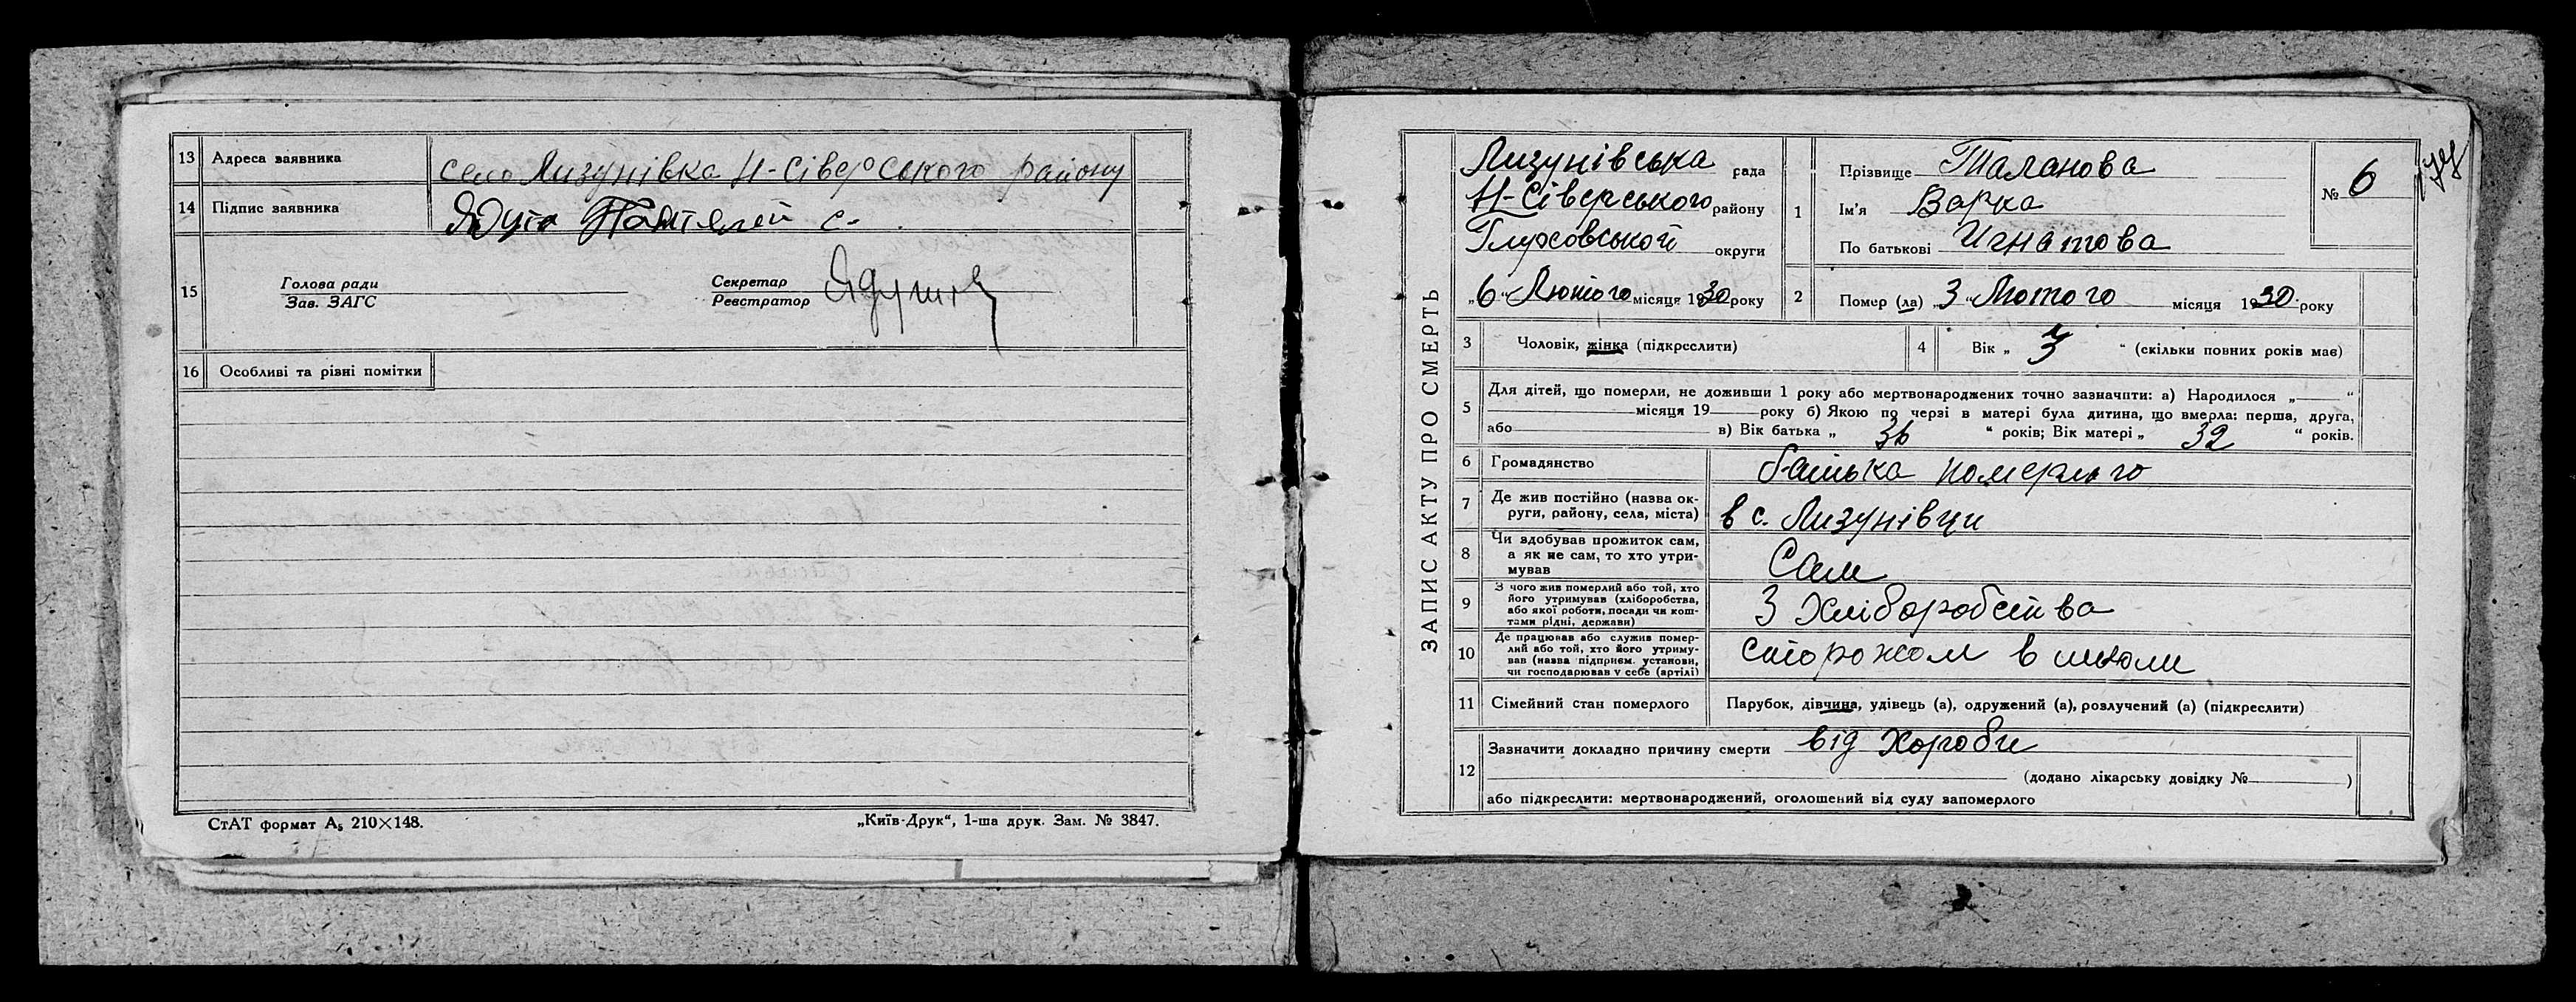 13 Адреса заявника село Лизунівка Н-Сіверського району
14 Підпис заявника Ядута Пантелей с.
15 Голова ради
Зав. ЗАГС
Секретар
Реєстратор
16 Особливі та різні помітки
СтАТ формат А₅ 210×148.
„Київ-Друк“, 1-ша друк. Зам. № 3847.
ЗАПИС АКТУ ПРО СМЕРТЬ
Лизунівська рада
Н-Сіверського району
Глуховськой округи
„6“ Лютого місяця 1930 року
1 Прізвище Таланова
Ім'я Варка
По батькові Игнатова
№ 6
2 Помер (ла) „3“ Лютого місяця 1930 року
3 Чоловік, жінка (підкреслити)
4 Вік „ 3 “ (скільки повних років має)
5 Для дітей, що померли, не доживши 1 року або мертвонароджених точно зазначити: а) Народилося „ “
місяця 19 року б) Якою по черзі в матері була дитина, що вмерла: перша, друга,
або в) Вік батька „ 36 “ років; Вік матері „ 32 “ років.
6 Громадянство батька
7 Де жив постійно (назва ок-
руги, району, села, міста) в с. Лизунівци
8 Чи здобував прожиток сам,
а як не сам, то хто утри-
мував Сам
9 З чого жив померлий або той, хто
його утримував (хліборобства,
або якої роботи, посади чи кош-
тами рідні, держави) З Хліборобства
10 Де працював або служив помер-
лий або той, хто його утриму-
вав (назва підприєм. установи,
чи господарював у себе (артілі) сторожом в школи
11 Сімейний стан померлого Парубок, дівчина, удівець (а), одружений (а), розлучений (а) (підкреслити)
12 Зазначити докладно причину смерти від Хороби
(додано лікарську довідку № )
або підкреслити: мертвонароджений, оголошений від суду запомерлого